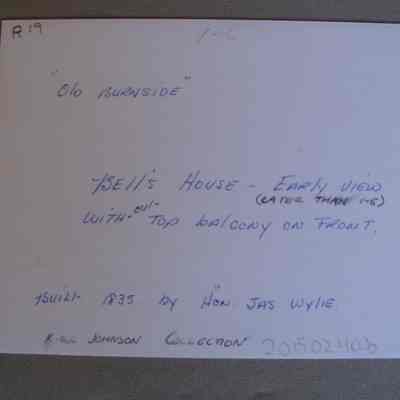 R 19
1-6
"Old BURNSIDE"
BELL'S HOUSE - EARLY VIEW
(LATER THAN 1-5)
WITH-OUT- TOP balcony ON FRONT.
BUILT 1835 by HON. JAS WYLIE
JOHNSON COLLECTION 20150240b